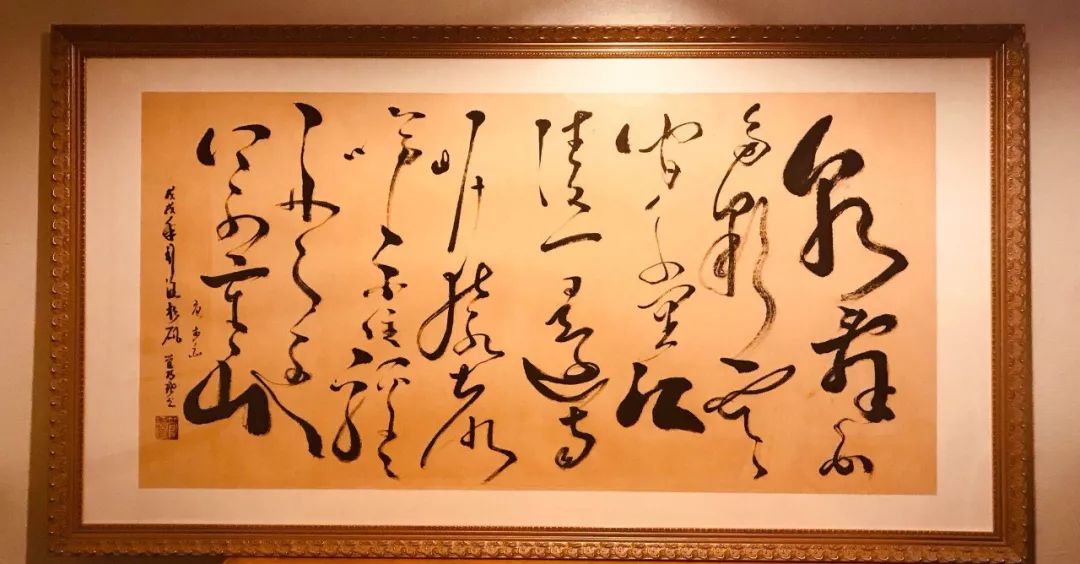 朝辞白
帝彩云
间千里江
陵一日還两
岸猿声
啼不住轻
舟已过
万重山
戊戌年